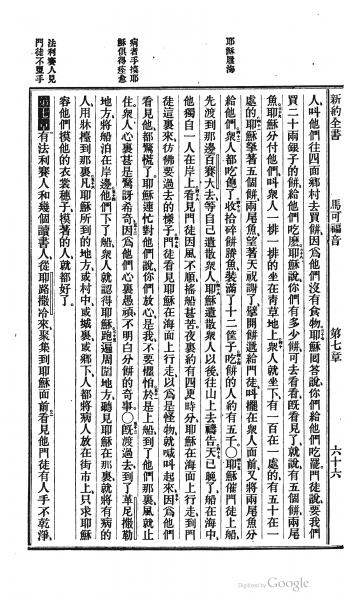 新約全書 馬可福音 第七章 六十六
耶穌履海
病者手摸耶
穌俱得痊愈
法利賽人見
門徒不盥手
人、叫他們往四面鄉村去買餅、因爲他們沒有食物、耶穌囘答說、你們給他們吃罷、門徒說、要我們
買二十兩銀子的餅、給他們吃麼、耶穌說、你們有多少餅、可去看看、旣看見了、就說、有五個餅、兩尾
魚、耶穌分付他們、叫衆人一排一排的坐在靑草地上、衆人就坐下、有一百在一處的、有五十在一
處的、耶穌拏著五個餅、兩尾魚、望著天祝謝了、擘開餅、遞給門徒、叫擺在衆人面前、又將兩尾魚分
給他們、衆人都吃飽了、收拾碎餅賸魚、裝滿了十二筐子、吃餅的人約有五千、○耶穌催門徒上船、
先渡到那邊百賽大去、等自己遣散衆人、耶穌遣散衆人以後、往山上去禱告、天已晚了、船在海中、
他獨自一人在岸上、看見門徒因風不順、搖船甚苦、夜裏約有四更時分、耶穌在海面上行走、到門
徒這裏來、彷彿要過去的樣子、門徒看見耶穌在海面上行走、以爲是怪物、就喊叫起來、因爲他們
看見他、都驚慌了、耶穌連忙對他們說、你們放心、是我、不要懼怕、於是上船、到了他們那裏、風就止
住、衆人心裏甚是驚訝希奇、因爲他們心裏愚頑、不明白分餅的奇事、○旣渡過去、到了革尼撒勒
地方、將船泊在岸邊、他們下了船、衆人就認得耶穌、跑遍周圍地方、聽見耶穌在那裏、就將有病的
人、用牀檯到那裏、凡耶穌所到的地方、或村中、或城裏、或鄉下、人都將病人放在街市上、只求耶穌
容他們摸他的衣裳穟子、摸著的人、就都好了、
第七章有法利賽人和幾個讀書人、從耶路撒冷來、聚集到耶穌面前、看見他門徒有人手不乾淨、
Digitized by Google